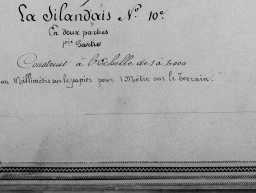 La Silandais N.º 10ᵉ
En deux parties
1ère Partie
Construit à l'Echelle de 1 à 2000
un Millimètre sur le papier pour 2 Mètre sur le Terrain.